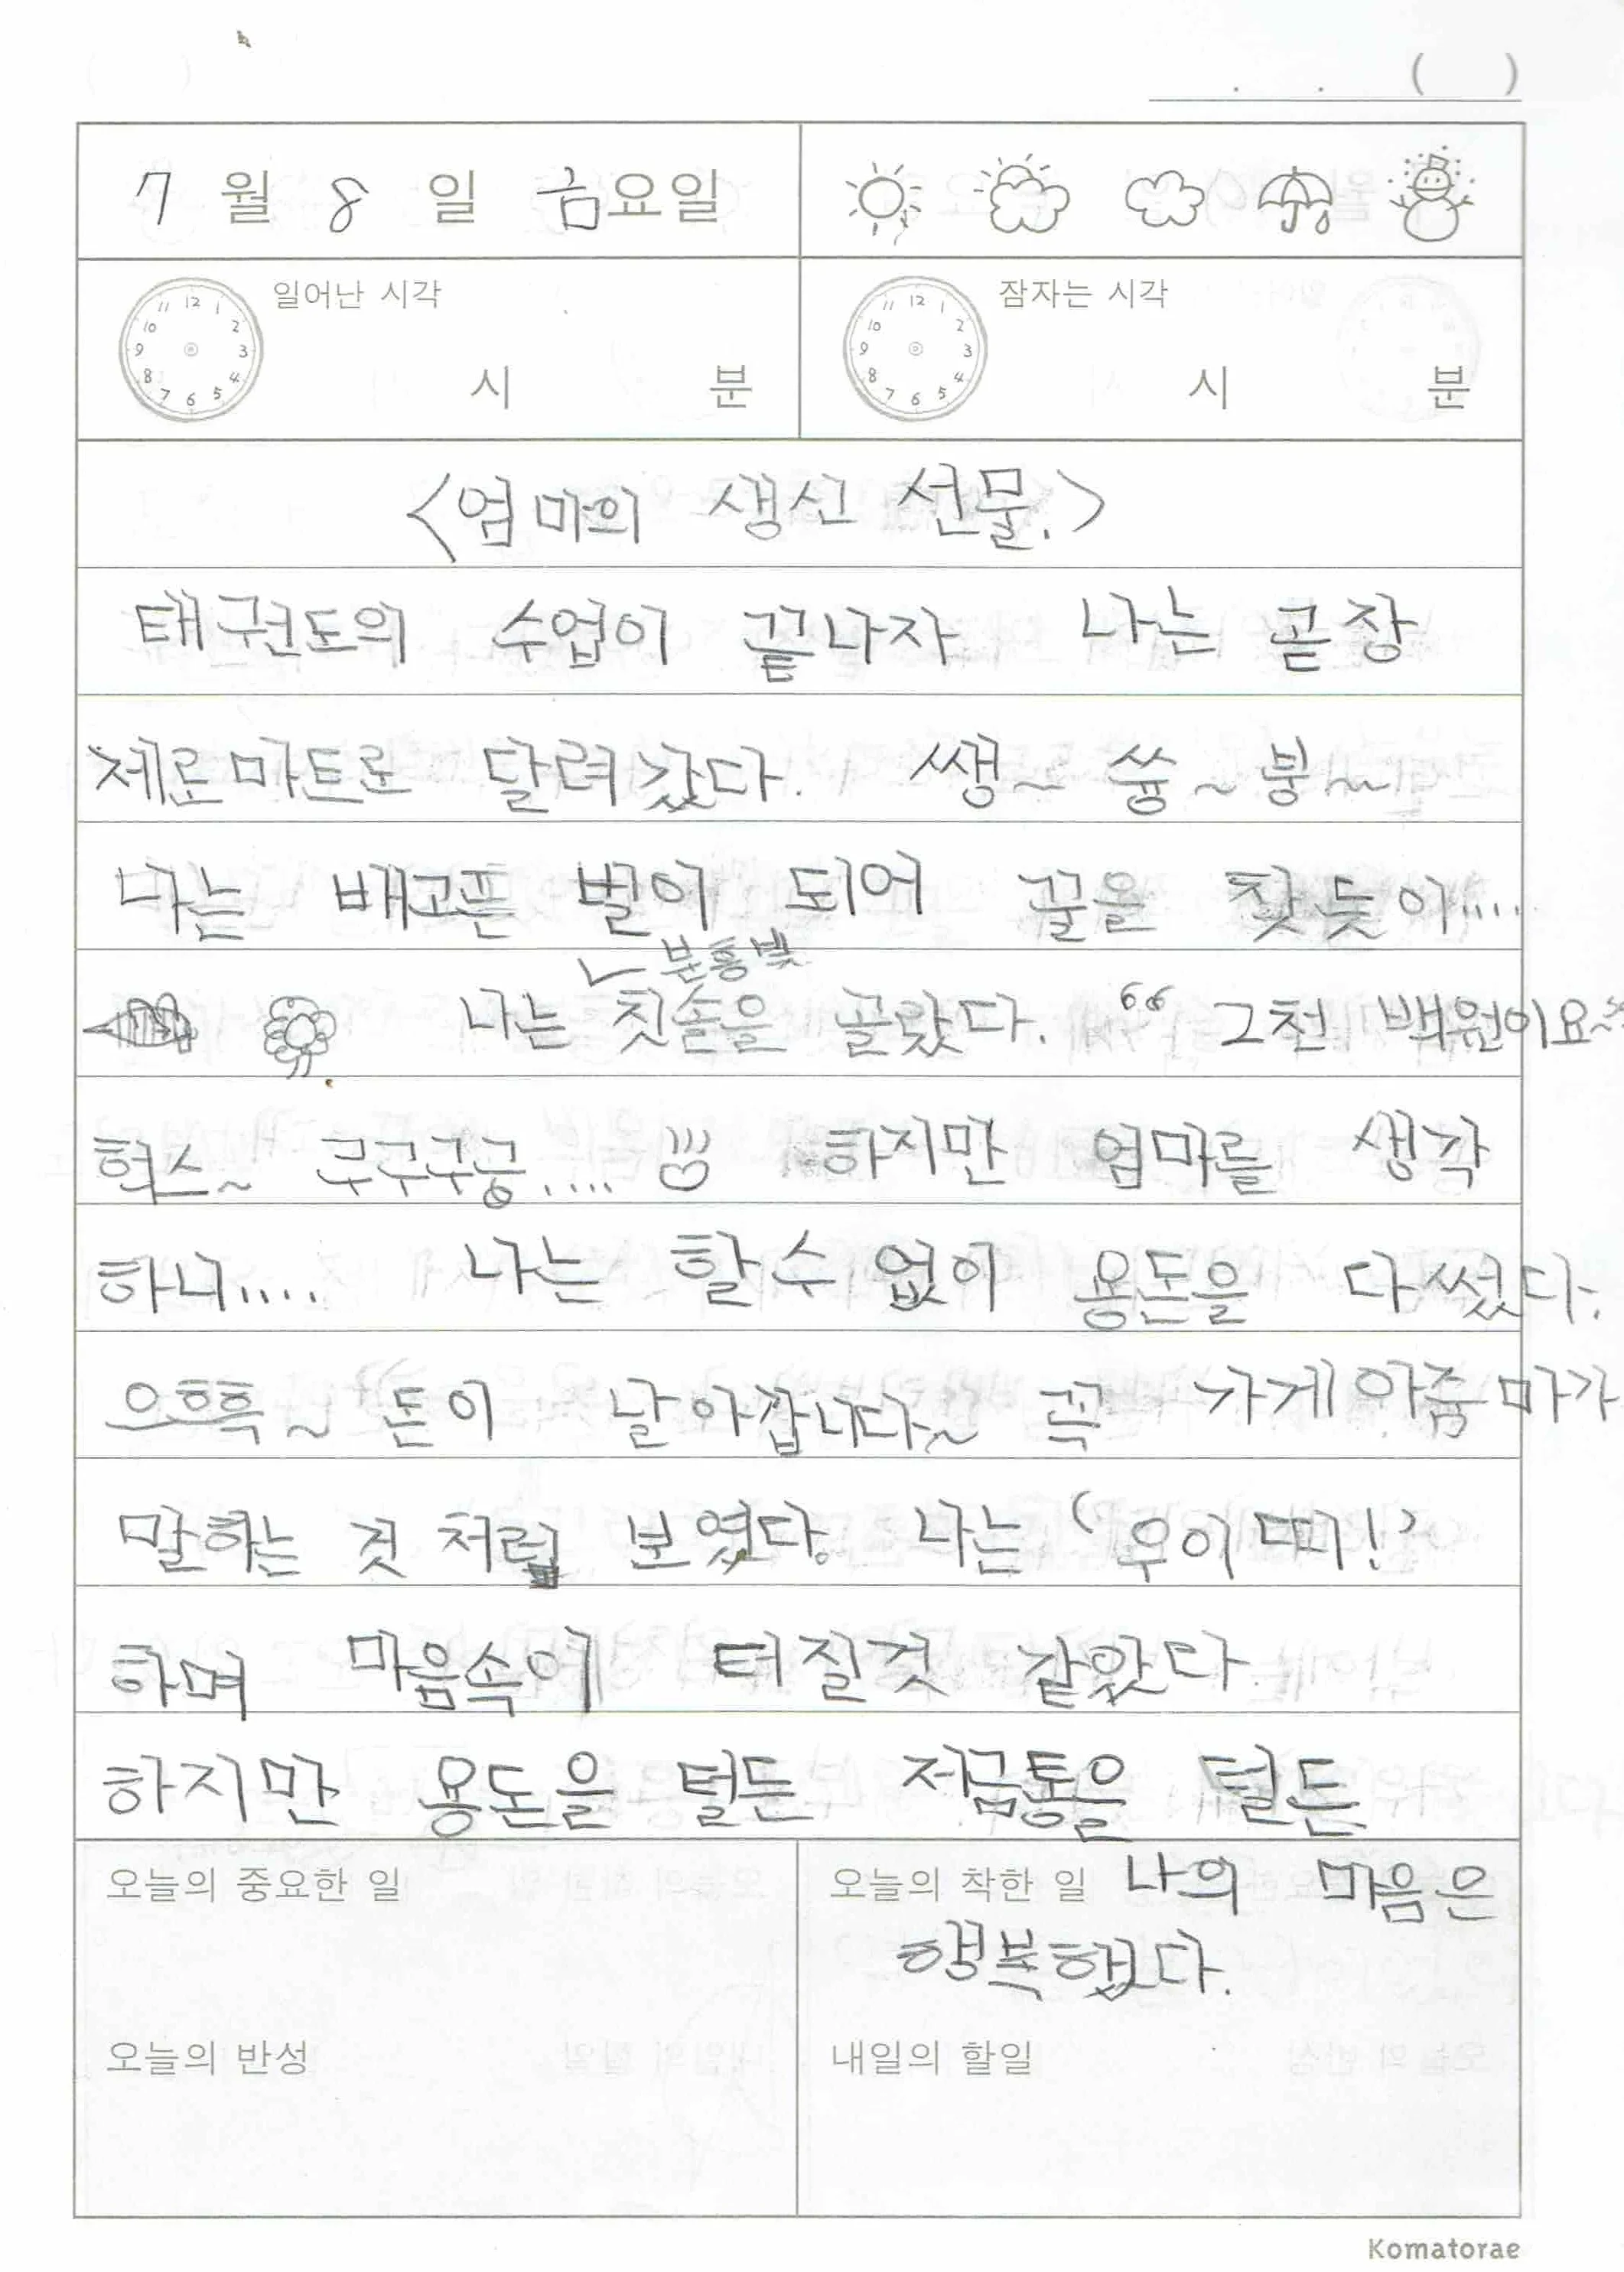 . . ( )
7 월 8 일 금요일
일어난 시각
시 분
잠자는 시각
시 분
<엄마의 생신 선물.>
태권도의 수업이 끝나자 나는 곧장
제로마트로 달려갔다. 쌩~ 쓩~ 붕~
나는 배고픈 벌이 되어 꿀을 찾듯이....
분홍빛
나는 칫솔을 골랐다. “ 그천 백원이요~”
헉스~ 쿠구구궁.... 하지만 엄마를 생각
하니.... 나는 할수 없이 용돈을 다썼다.
으흐흑~ 돈이 날아갑니다~ 꼭 가게아줌마가
말하는 것 처럼 보였다. 나는 ‘우이띠!’
하며 마음속이 터질것 같았다.
하지만 용돈을 털든 저금통을 털든
오늘의 중요한 일
오늘의 착한 일 나의 마음은
행복했다.
오늘의 반성
내일의 할일
Komatorae